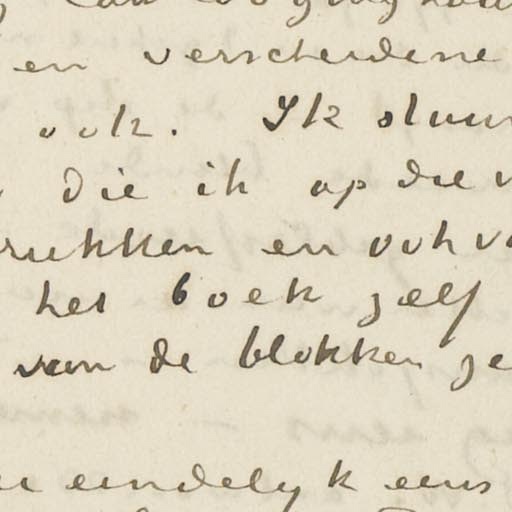 en verscheidene
ook. Ik stuur
die ik op die
rukken en ook
het boek zelf
van de blokken
eindelyk eens